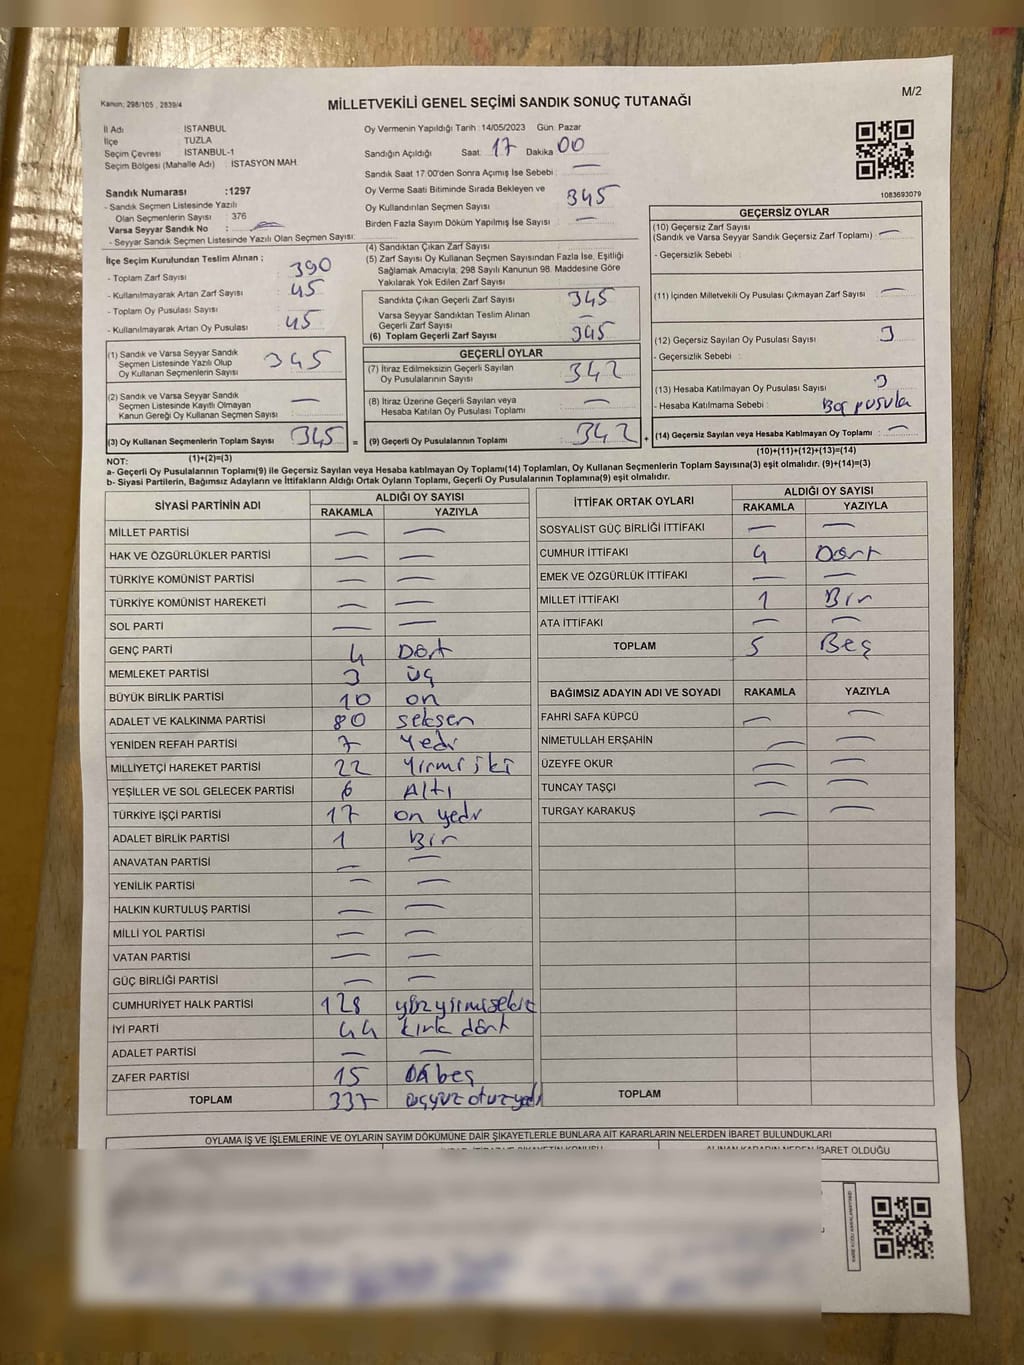 Kanun; 298/105 , 2839/4
MİLLETVEKİLİ GENEL SEÇİMİ SANDIK SONUÇ TUTANAĞI
M/2
İl Adı İSTANBUL
İlçe TUZLA
Seçim Çevresi İSTANBUL-1
Seçim Bölgesi (Mahalle Adı) : İSTASYON MAH.
Sandık Numarası :1297
- Sandık Seçmen Listesinde Yazılı
Olan Seçmenlerin Sayısı : 376
Varsa Seyyar Sandık No :
- Seyyar Sandık Seçmen Listesinde Yazılı Olan Seçmen Sayısı:
Oy Vermenin Yapıldığı Tarih : 14/05/2023 Gün: Pazar
Sandığın Açıldığı Saat: 17 Dakika 00
Sandık Saat 17.00'den Sonra Açımış İse Sebebi : —
Oy Verme Saati Bitiminde Sırada Bekleyen ve
Oy Kullandırılan Seçmen Sayısı : 345
Birden Fazla Sayım Döküm Yapılmış İse Sayısı : —
1083693079
İlçe Seçim Kurulundan Teslim Alınan ;
- Toplam Zarf Sayısı : 390
- Kullanılmayarak Artan Zarf Sayısı : 45
- Toplam Oy Pusulası Sayısı :
- Kullanılmayarak Artan Oy Pusulası : 45
(1) Sandık ve Varsa Seyyar Sandık
Seçmen Listesinde Yazılı Olup
Oy Kullanan Seçmenlerin Sayısı : 345
(2) Sandık ve Varsa Seyyar Sandık
Seçmen Listesinde Kayıtlı Olmayan
Kanun Gereği Oy Kullanan Seçmen Sayısı : —
(3) Oy Kullanan Seçmenlerin Toplam Sayısı : 345 =
(1)+(2)=(3)
(4) Sandıktan Çıkan Zarf Sayısı :
(5) Zarf Sayısı Oy Kullanan Seçmen Sayısından Fazla İse, Eşitliği
Sağlamak Amacıyla; 298 Sayılı Kanunun 98. Maddesine Göre
Yakılarak Yok Edilen Zarf Sayısı :
Sandıkta Çıkan Geçerli Zarf Sayısı : 345
Varsa Seyyar Sandıktan Teslim Alınan
Geçerli Zarf Sayısı : —
(6) Toplam Geçerli Zarf Sayısı : 345
GEÇERLİ OYLAR
(7) İtiraz Edilmeksizin Geçerli Sayılan
Oy Pusulalarının Sayısı : 342
(8) İtiraz Üzerine Geçerli Sayılan veya
Hesaba Katılan Oy Pusulası Toplamı : —
(9) Geçerli Oy Pusulalarının Toplamı : 342 +
GEÇERSİZ OYLAR
(10) Geçersiz Zarf Sayısı
(Sandık ve Varsa Seyyar Sandık Geçersiz Zarf Toplamı) : —
- Geçersizlik Sebebi :
(11) İçinden Milletvekili Oy Pusulası Çıkmayan Zarf Sayısı : —
(12) Geçersiz Sayılan Oy Pusulası Sayısı : 3
- Geçersizlik Sebebi :
(13) Hesaba Katılmayan Oy Pusulası Sayısı : 3
- Hesaba Katılmama Sebebi : Boş pusula
(14) Geçersiz Sayılan veya Hesaba Katılmayan Oy Toplamı : —
(10)+(11)+(12)+(13)=(14)
NOT:
a- Geçerli Oy Pusulalarının Toplamı(9) ile Geçersiz Sayılan veya Hesaba katılmayan Oy Toplamı(14) Toplamları, Oy Kullanan Seçmenlerin Toplam Sayısına(3) eşit olmalıdır. (9)+(14)=(3)
b- Siyasi Partilerin, Bağımsız Adayların ve İttifakların Aldığı Ortak Oyların Toplamı, Geçerli Oy Pusulalarının Toplamına(9) eşit olmalıdır.
SİYASİ PARTİNİN ADI ALDIĞI OY SAYISI
RAKAMLA YAZIYLA
MİLLET PARTİSİ — —
HAK VE ÖZGÜRLÜKLER PARTİSİ — —
TÜRKİYE KOMÜNİST PARTİSİ — —
TÜRKİYE KOMÜNİST HAREKETİ — —
SOL PARTİ — —
GENÇ PARTİ 4 Dört
MEMLEKET PARTİSİ 3 üç
BÜYÜK BİRLİK PARTİSİ 10 on
ADALET VE KALKINMA PARTİSİ 80 seksen
YENİDEN REFAH PARTİSİ 7 Yedi
MİLLİYETÇİ HAREKET PARTİSİ 22 Yirmi iki
YEŞİLLER VE SOL GELECEK PARTİSİ 6 Altı
TÜRKİYE İŞÇİ PARTİSİ 17 on yedi
ADALET BİRLİK PARTİSİ 1 Bir
ANAVATAN PARTİSİ — —
YENİLİK PARTİSİ — —
HALKIN KURTULUŞ PARTİSİ — —
MİLLİ YOL PARTİSİ — —
VATAN PARTİSİ — —
GÜÇ BİRLİĞİ PARTİSİ — —
CUMHURİYET HALK PARTİSİ 128 yüzyirmisekiz
İYİ PARTİ 44 kırk dört
ADALET PARTİSİ — —
ZAFER PARTİSİ 15 Onbeş
TOPLAM 337 üçyüz otuzyedi
İTTİFAK ORTAK OYLARI ALDIĞI OY SAYISI
RAKAMLA YAZIYLA
SOSYALİST GÜÇ BİRLİĞİ İTTİFAKI — —
CUMHUR İTTİFAKI 4 Dört
EMEK VE ÖZGÜRLÜK İTTİFAKI — —
MİLLET İTTİFAKI 1 Bir
ATA İTTİFAKI — —
TOPLAM 5 Beş
BAĞIMSIZ ADAYIN ADI VE SOYADI RAKAMLA YAZIYLA
FAHRİ SAFA KÜPCÜ — —
NİMETULLAH ERŞAHİN — —
ÜZEYFE OKUR — —
TUNCAY TAŞÇI — —
TURGAY KARAKUŞ — —
TOPLAM
OYLAMA İŞ VE İŞLEMLERİNE VE OYLARIN SAYIM DÖKÜMÜNE DAİR ŞİKAYETLERLE BUNLARA AİT KARARLARIN NELERDEN İBARET BULUNDUKLARI
İBARET OLDUĞU